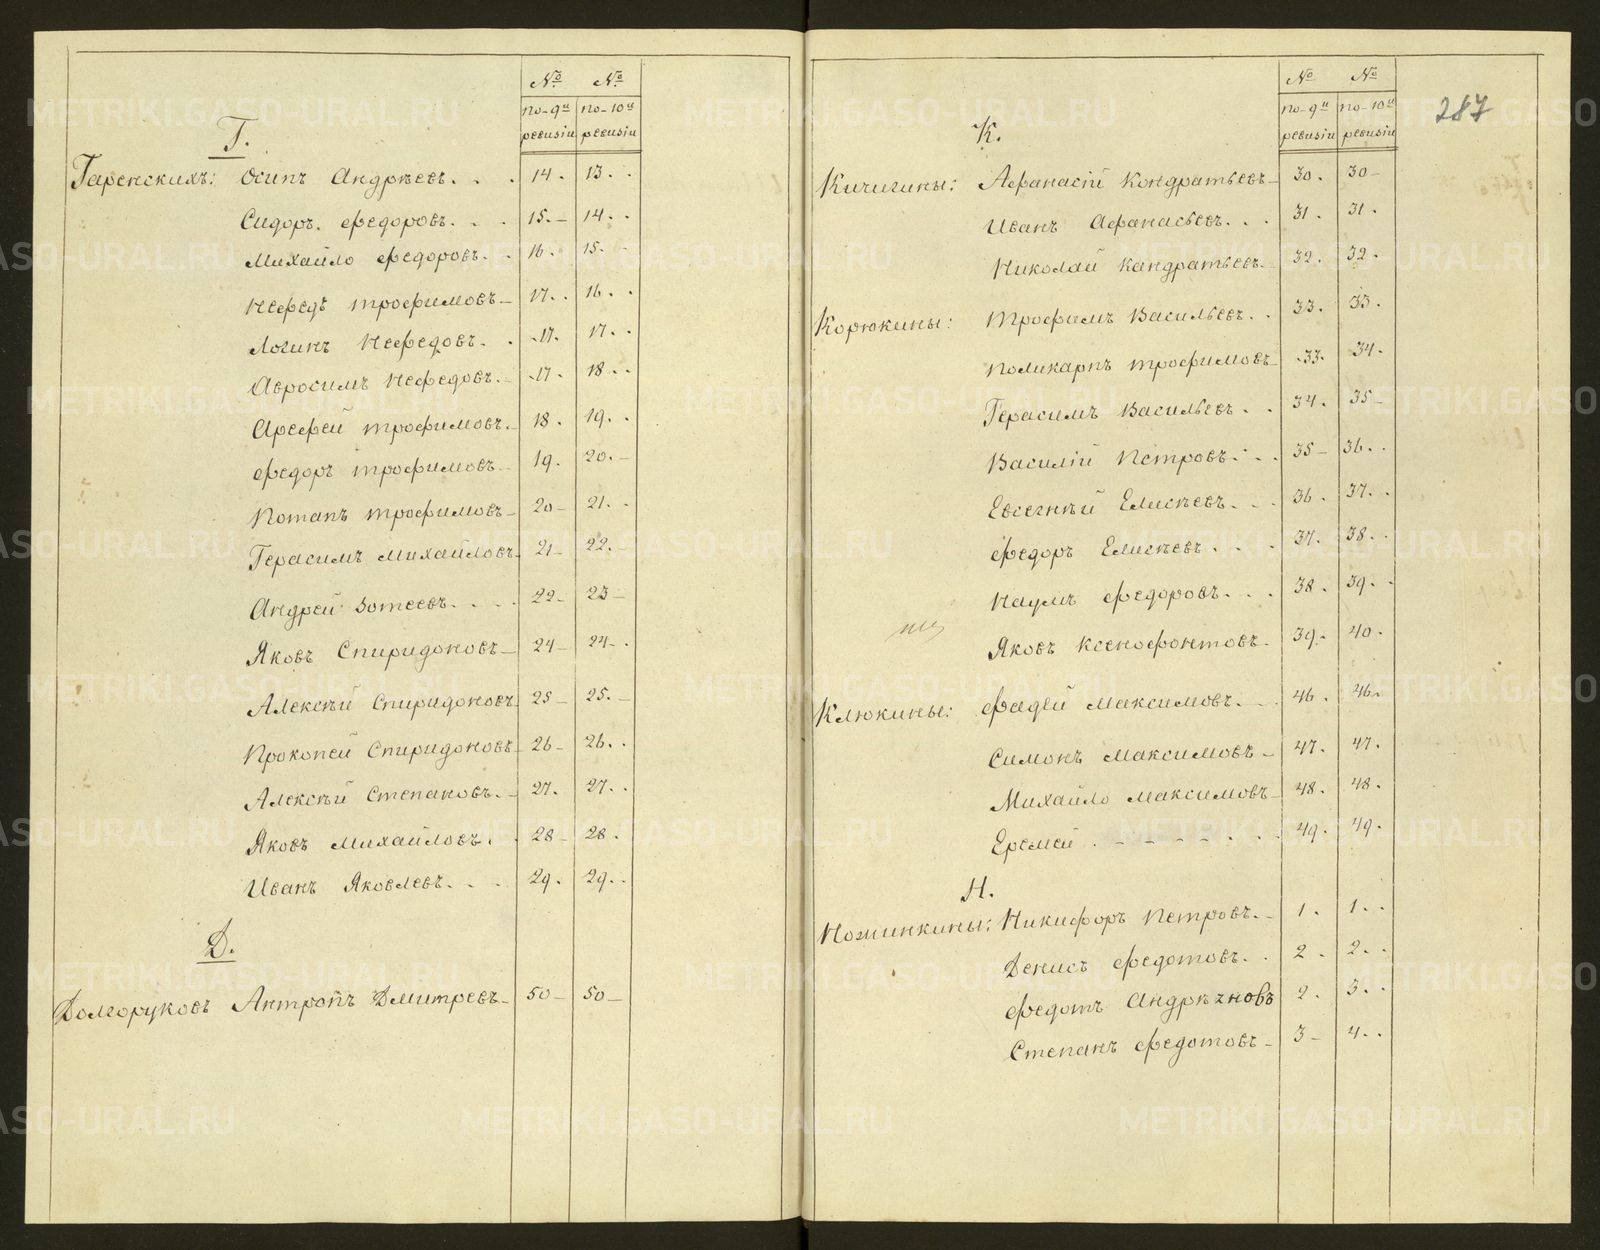 № №
по-9й по-10й
ревизiи ревизiи
Г.
Гаренскихъ: Осипъ Андрѣевъ. . . 14. 13. .
Сидоръ. Ѳедоровъ. . . 15.- 14. .
Михайло Ѳедоровъ. . 16. 15. -
Нефедъ Трофимовъ- 17. . 16. .
Логинъ Нефедовъ. . 17. 17. .
Авросимъ Нефедовъ. - 17. 18. .
Арефей Трофимовъ. - 18. 19. .
Федоръ Трофимовъ- 19. 20. -
Потапъ Трофимовъ- 20- 21. .
Герасимъ Михайловъ- 21- 22. -
Андрей Зотеевъ. . . . 22- 23-
Яковъ Спиридоновъ- 24- 24- .
Алексѣй Спиридоновъ 25- 25. -
Прокопей Спиридоновъ- 26- 26. .
Алексѣй Степановъ. - 27. 27. .
Яковъ Михайловъ. . 28- 28. .
Иванъ Яковлевъ. . . 29. 29. .
Д.
Долгоруковъ Антропъ Дмитревъ- 50- 50-
№ № 287
по-9й по-10й
ревизiи ревизiи
К.
Кичигины: Афанасiй Кондратьевъ- 30. 30-
Иванъ Афанасьевъ. . . 31. 31.
Николай Кондратьевъ- 32. 32.
Корюкины: Трофимъ Васильевъ. . 33. 33.
Поликарпъ Трофимовъ- 33. 34.
Герасимъ Васильевъ. . 34. 35-
Василiй Петровъ. . . 35- 36. .
Евсегнѣй Елисѣевъ. . . 36. 37. .
Федоръ Елисѣевъ. . . 37. 38. .
Наумъ Федоровъ. . . 38. 39. .
Яковъ Ксенофонтовъ- 39. 40.
Клюкины: Фадей Максимовъ. . . 46. 46.
Симонъ Максимовъ- 47. 47.
Михайло Максимовъ- 48. 48.
Еремей . - - - - . . . 49. 49.
Н.
Ножинкины: Никифоръ Петровъ. - 1. 1. .
Денисъ Федотовъ. . 2. 2. .
Федотъ Андрѣяновъ 2. 3. .
Степанъ Федотовъ- 3- 4. .